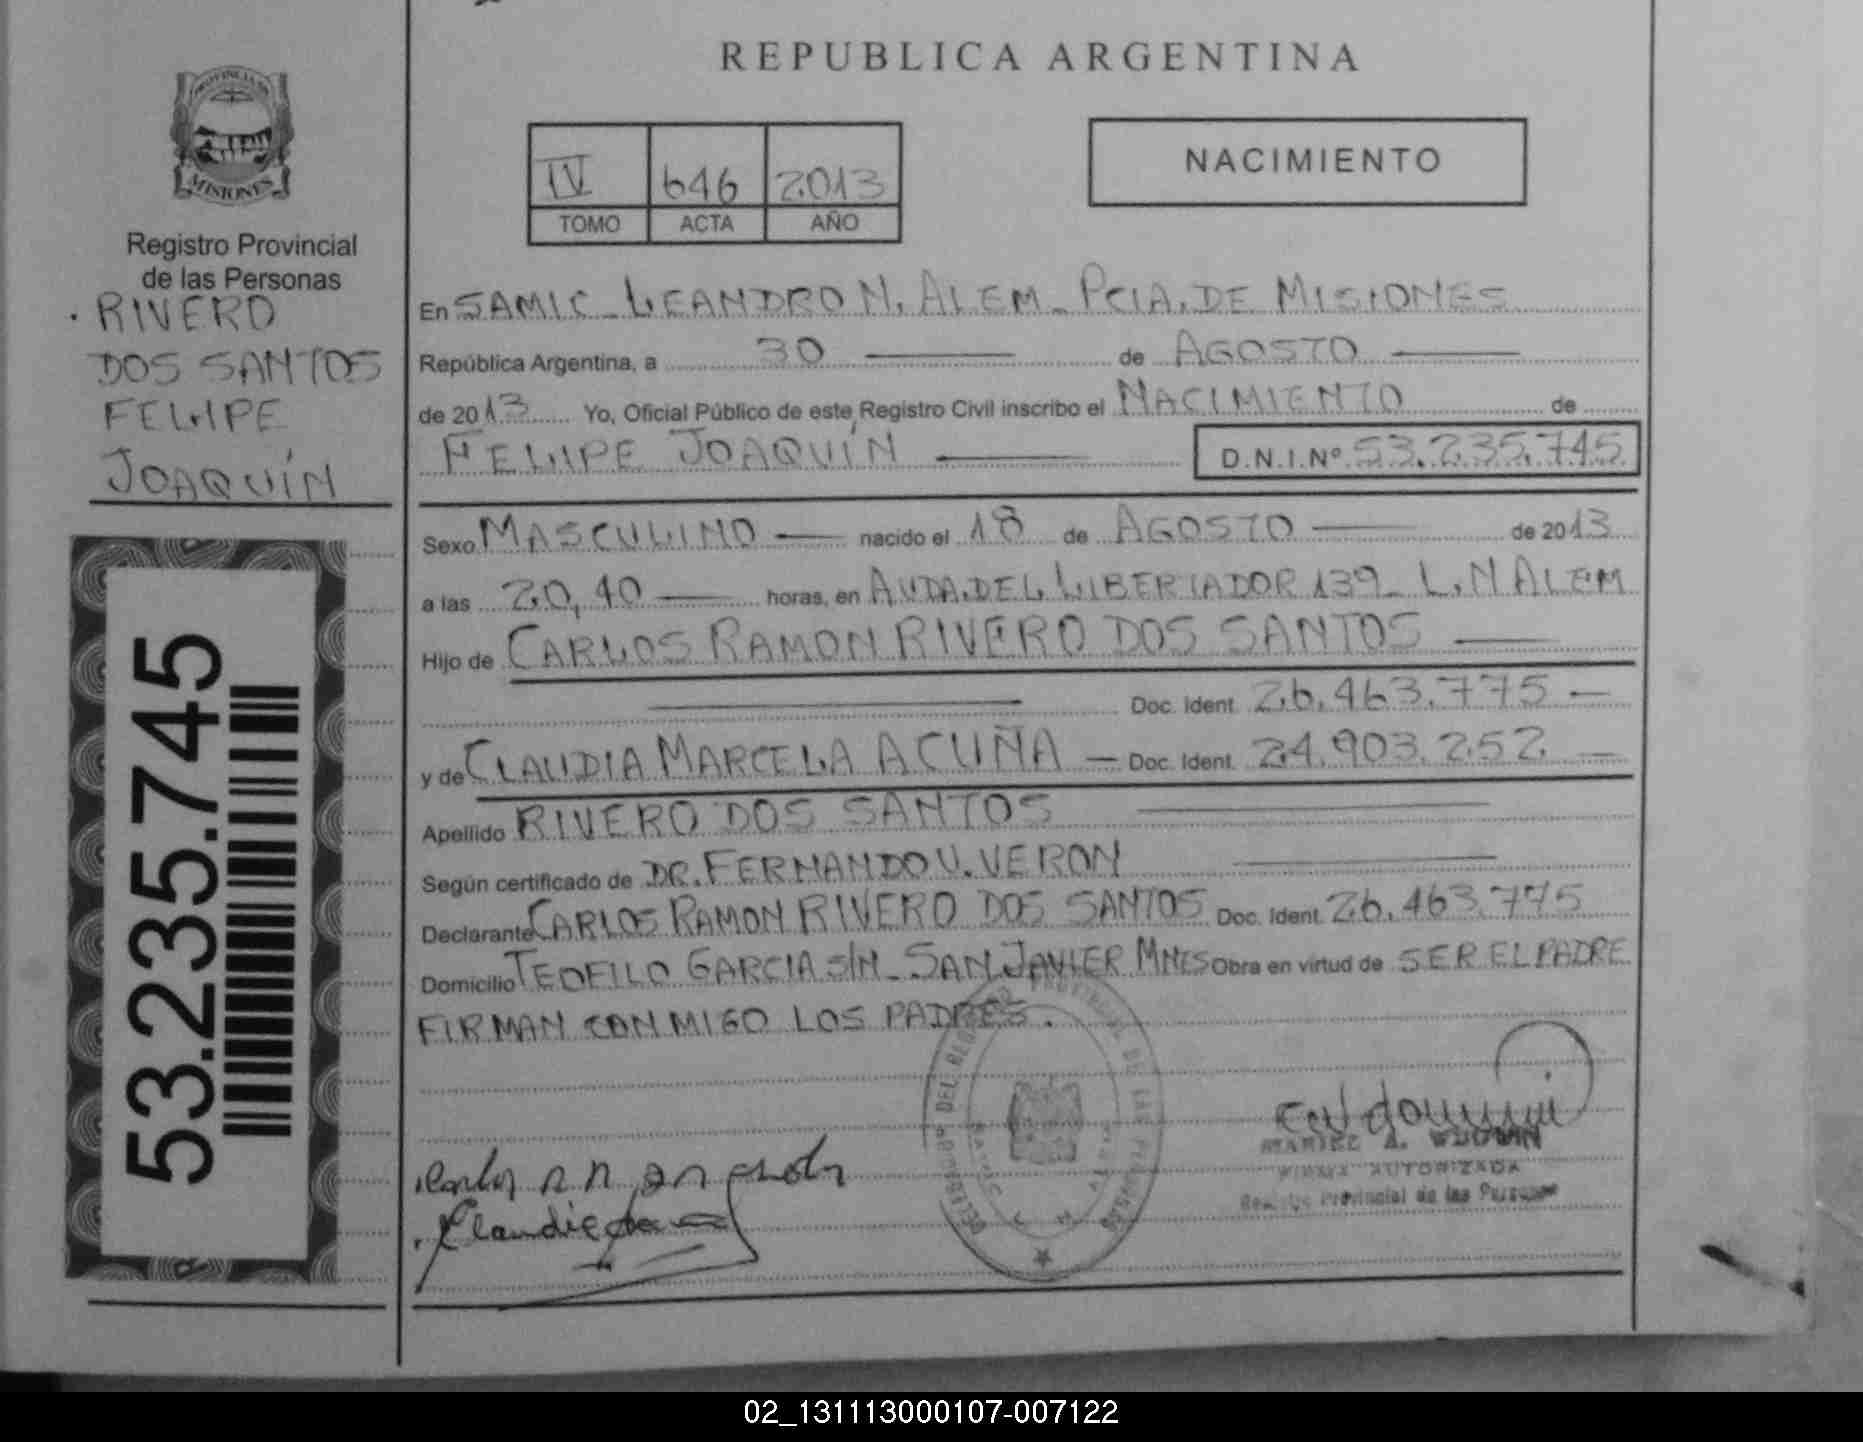 REPUBLICA ARGENTINA
PROVINCIA DE
MISIONES
Registro Provincial
de las Personas
RIVERO
DOS SANTOS
FELIPE
JOAQUÍN
53.235.745
IV 646 2013
TOMO ACTA AÑO
NACIMIENTO
En SAMIC - LEANDRO N. ALEM - PCIA. DE MISIONES
República Argentina, a 30 de AGOSTO
de 2013 Yo, Oficial Público de este Registro Civil inscribo el NACIMIENTO de
FELIPE JOAQUÍN D.N.I.Nº 53.235.745
Sexo MASCULINO nacido el 18 de AGOSTO de 2013
a las 20,40 horas, en AVDA. DEL LIBERTADOR 139 - L. N ALEM
Hijo de CARLOS RAMON RIVERO DOS SANTOS
Doc. Ident. 26.463.775
y de CLAUDIA MARCELA ACUÑA Doc. Ident. 24.903.252
Apellido RIVERO DOS SANTOS
Según certificado de DR. FERNANDO V. VERON
Declarante CARLOS RAMON RIVERO DOS SANTOS Doc. Ident. 26.463.775
Domicilio TEOFILO GARCIA S/N - SAN JAVIER MNES Obra en virtud de SER EL PADRE
FIRMAN CONMIGO LOS PADRES.
DEL REGISTRO PROVINCIAL DE LAS PERSONAS
MARIEL A.
FIRMA AUTORIZADA
Registro Provincial de las Personas
Claudia
02_131113000107-007122